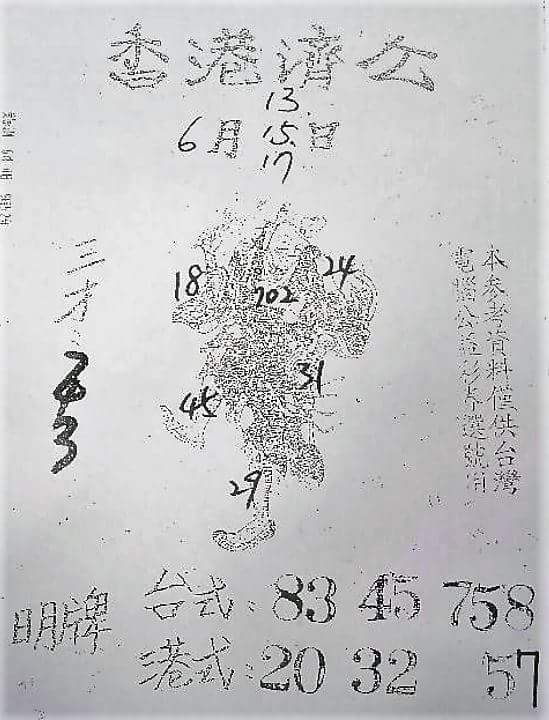 香港濟公
13
6月15日
17
三才:
743
18
24
702
31
45
29
本參考資料僅供台灣
電腦公益彩券選號用
明牌
台式:83 45 758
港式:20 32 57